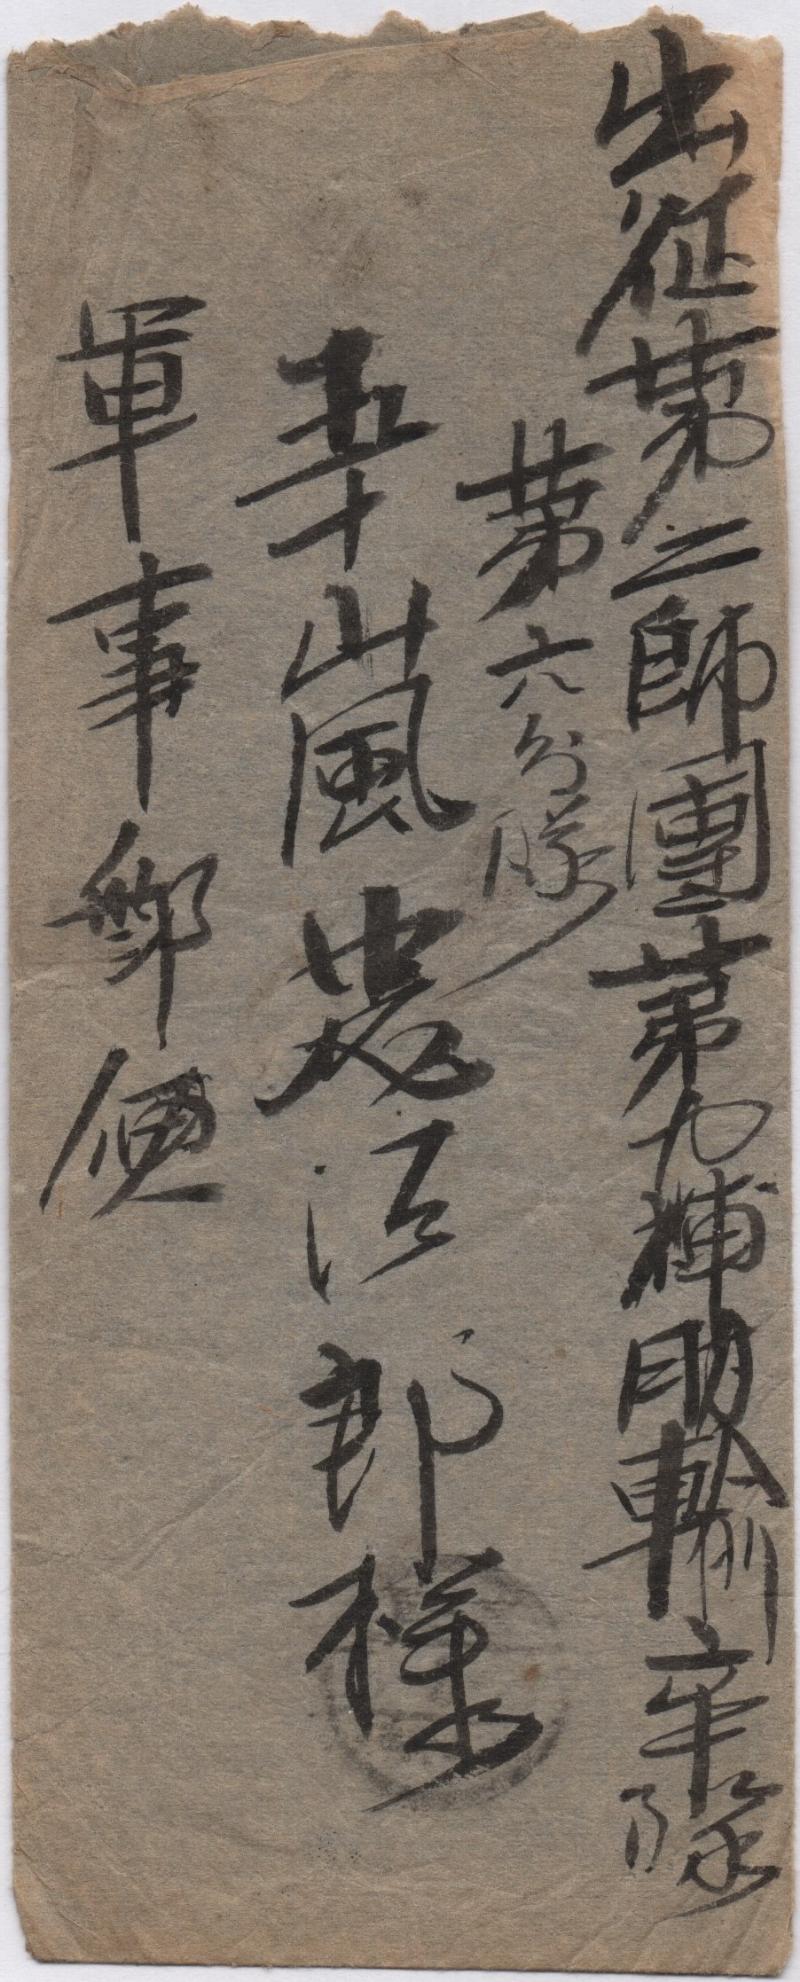 出征第二師團第九補助輸卒隊
第六分隊
五十嵐農治郎様
軍事郵便